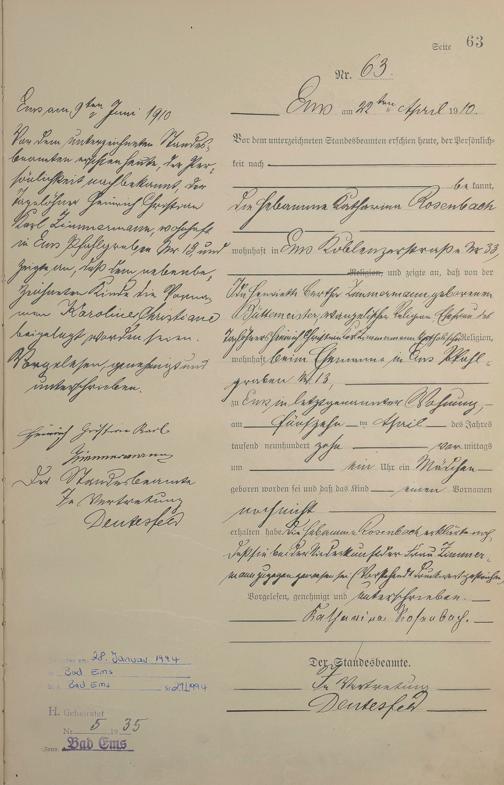 Seite 63
Nr. 63.
Ems am 22ten April 1910.
Vor dem unterzeichneten Standesbeamten erschien heute, der Persönlich-
keit nach
bekannt,
die Hebamme Katharina Rosenbach
wohnhaft in Ems Koblenzerstraße Nr 33,
Religion, und zeigte an, daß von der
Zimmermann geborenen
evangelischer Religion Ehefrau des
Tagelöhners Heinrich Christian Karl Zimmermann Religion,
wohnhaft beim Ehemanne in Ems Pfahl-
graben Nr 13,
zu Ems in letztgenannter Wohnung,
am fünfzehn ten April des Jahres
tausend neunhundert zehn vor mittags
um ein Uhr ein Mädchen
geboren worden sei und daß das Kind einen Vornamen
noch nicht
erhalten habe. Die Hebamme Rosenbach erklärte noch,
daß sie bei der Niederkunft der Frau Zimmer-
mann zugegen gewesen sei. (Vorstehend Druckwort gestrichen)
Vorgelesen, genehmigt und unterschrieben.
Katharina Rosenbach.
Der Standesbeamte.
In Vertretung
Deutesfeld
Ems, am 9ten Juni 1910
Vor dem unterzeichneten Standes-
beamten erschien heute, der Per-
sönlichkeit nach bekannt, der
Tagelöhner Heinrich Christian
Karl Zimmermann, wohnhaft
in Ems Pfahlgraben Nr 13, und
zeigte an, daß dem nebenbe-
zeichneten Kinde die Vorna-
men Karoline Christiane
beigelegt worden seien.
Vorgelesen, genehmigt und
unterschrieben.
Heinrich Christian Karl
Zimmermann
Der Standesbeamte
In Vertretung
Deutesfeld
28. Januar 1994
Bad Ems
Bad Ems
H. Geheiratet
Nr. 5 1935
Bad Ems